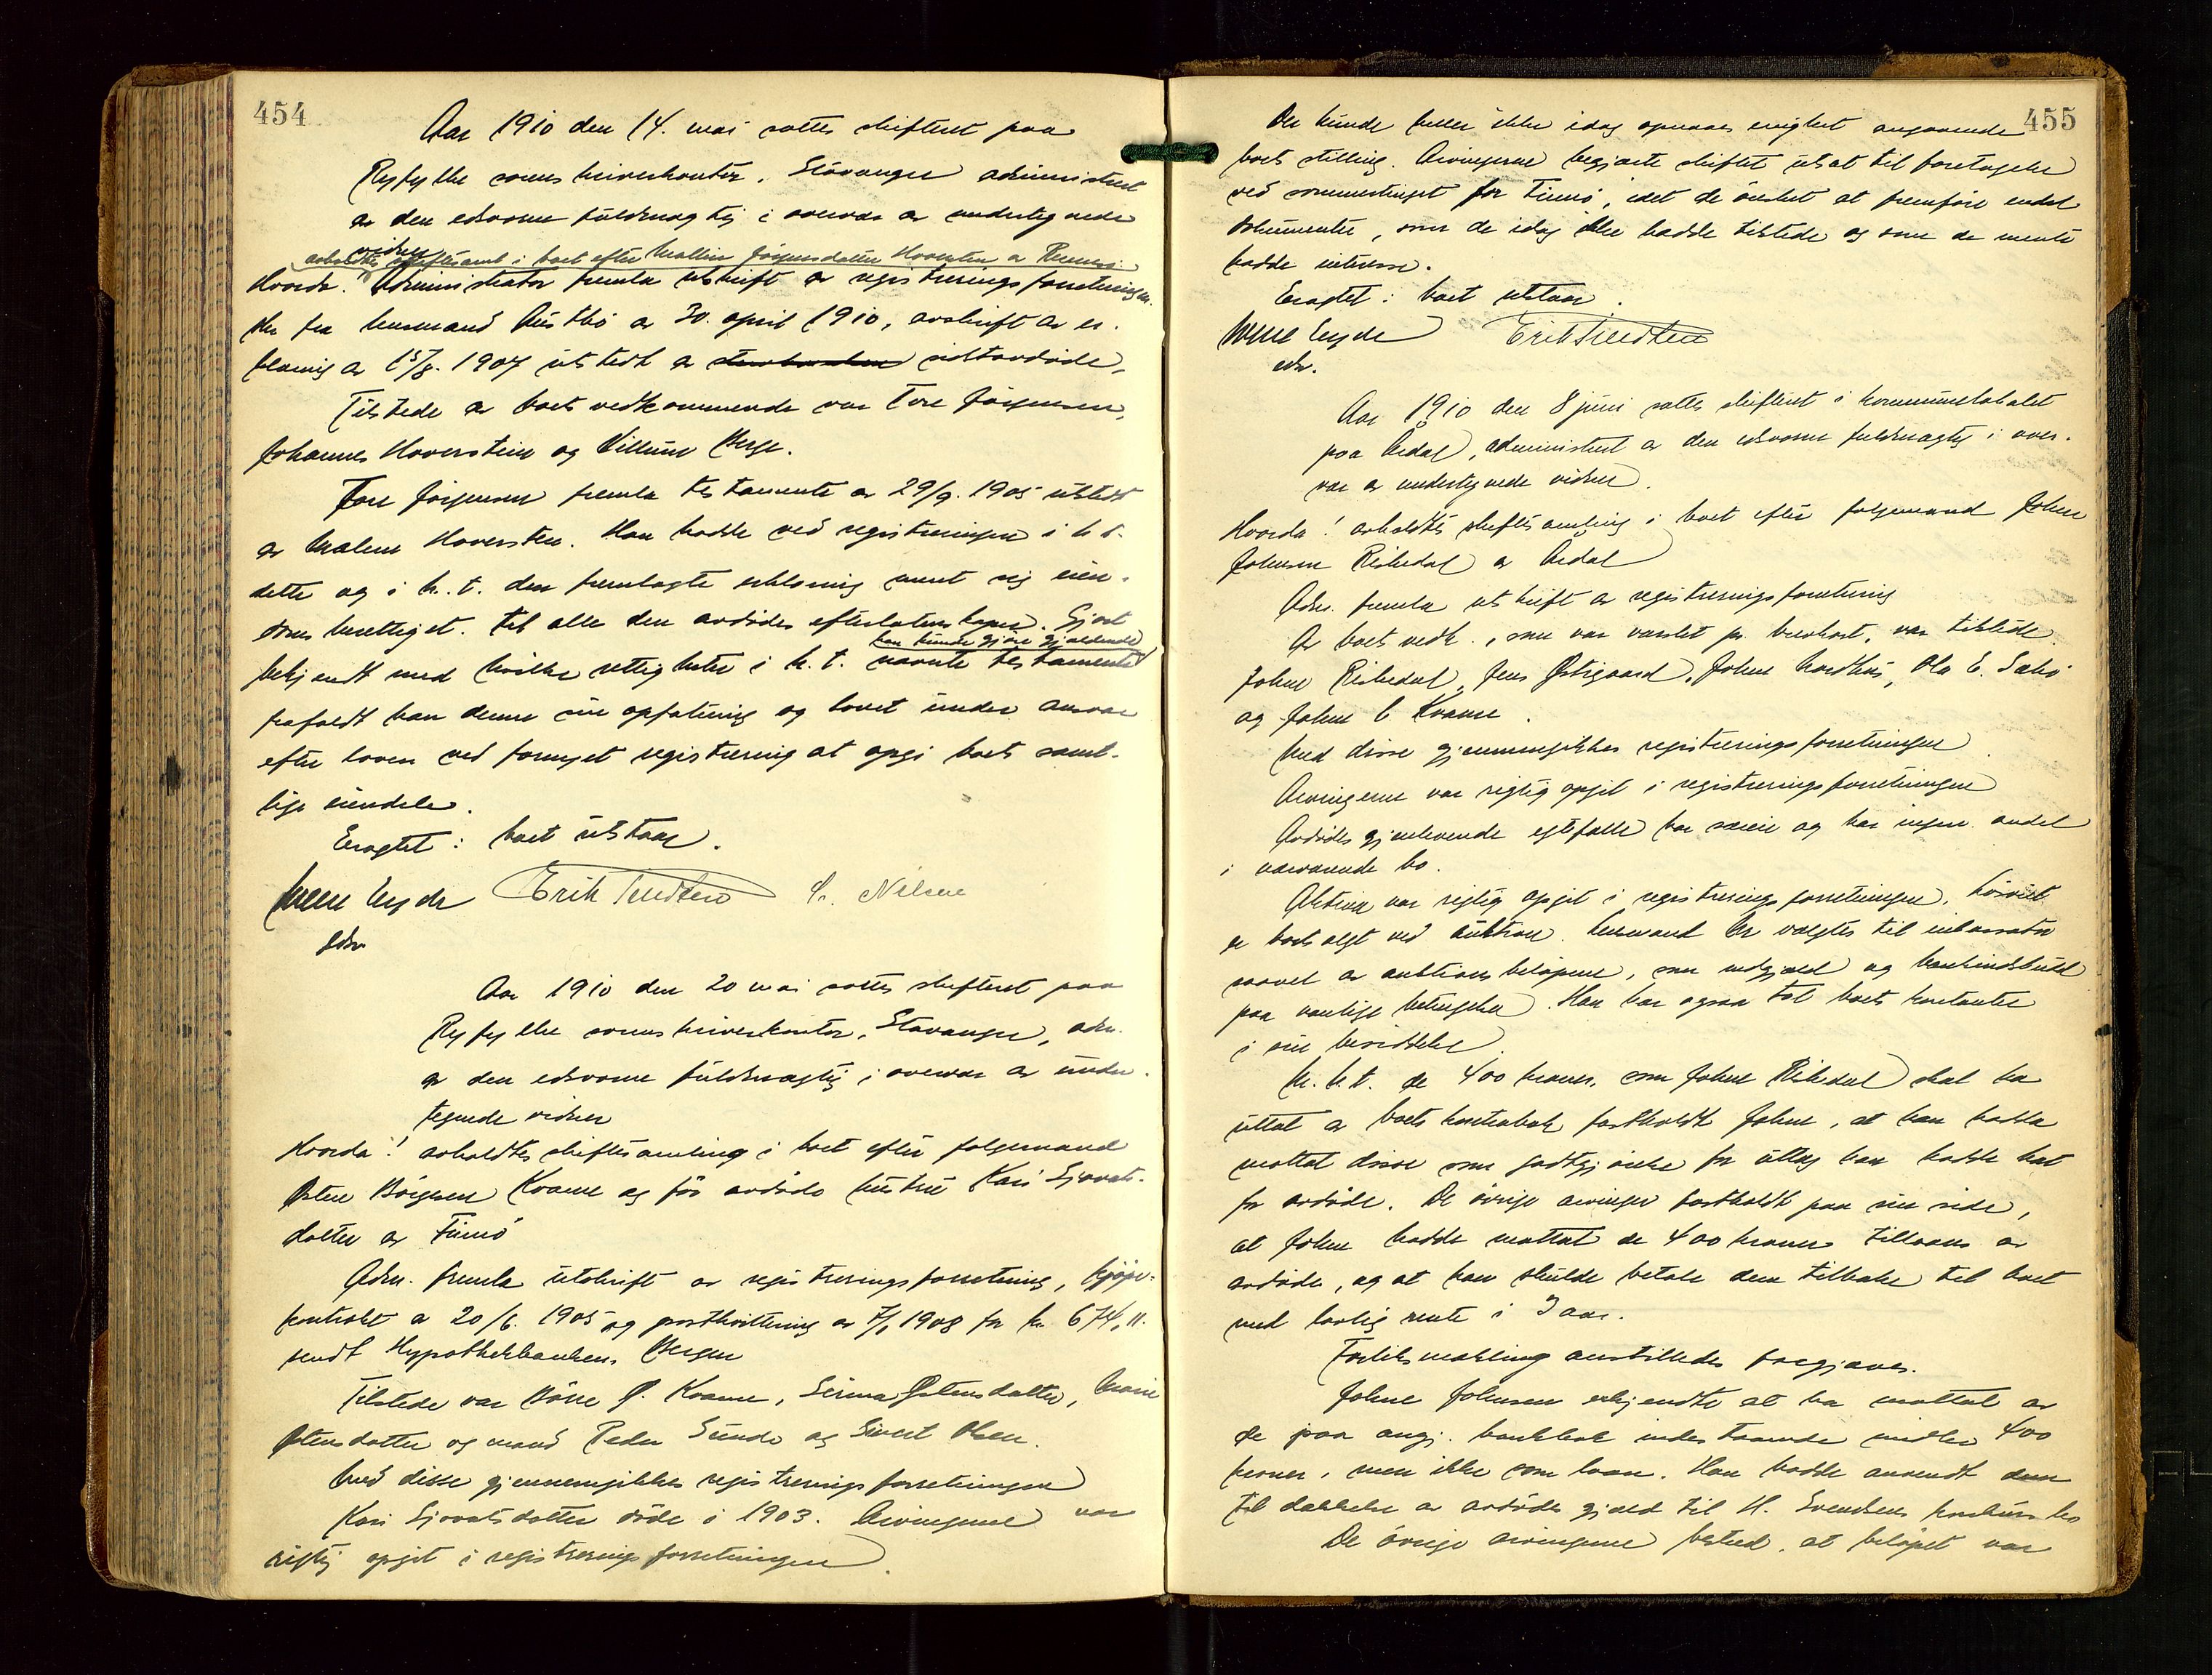 454
Aar 1910 den 14. mai sattes skifteret paa
Ryfylke sorenskriverkontor, Stavanger administrert
av den edsvorne fuldmægtig i overvær av undertegnede
vidner
avholdtes skiftesaml. i boet efter Malline Jørgensdatter Haversten av Rennesø
Hvorda! Administrator fremla utskrift av registreringsforretningen
av 30. april 1910, avskrift av er-
klæring av 15/8. 1907 utstedt av sidstavdøde.
Tilstede av boets vedkommende var Tore Jørgensen,
Johannes Haverstein og Villum Berge.
Tore Jørgensen fremla testamente av 29/9. 1905 utstedt
av Malene Haversten. Han hadde ved registreringen i h. t.
dette og i h. t. den fremlagte erklæring ment sig eien-
doms berettiget til alle den avdødes efterlatenskaper. Gjort
han kunde gjøre gjældende
bekjendt med hvilke rettigheter i h. t. nævnte testamente
frafaldt han denne sin opfatning og lovet under ansvar
efter loven ved fornyet registrering at opgi boets samt-
lige eiendele.
Eragtet: boet utstaar.
Erik Tendten Nilsen
edsv
Aar 1910 den 20 mai sattes skifteret paa
Ryfylke sorenskriverkontor, Stavanger, adm.
av den edsvorne fuldmægtig i overvær av under-
tegnede vidner
Hvorda! avholdtes skiftesamling i boet efter følgemand
Østen Børgesen Kvame og før avdøde hustru Kari Sjovats-
datter av Finnø
Adm. fremla utskrift av registreringsforretning, kjøpe-
kontrakt av 20/6. 1905 og postkvittering av 7/1 1908 for kr. 674,11.
sendt Hypothekbanken, Bergen
Tilstede var Børre Ø. Kvame, Serina Østensdatter, Marie
Østensdatter og mand Peder Sunde og Sivert Olsen.
Med disse gjennemgikkes registreringsforretningen
Kari Sjovatsdatter døde i 1903. Arvingerne var
rigtig opgit i registreringsforretningen.
455
Der kunde heller ikke idag opnaaes enighet angaaende
boets stilling. Arvingerne begjærte skiftet utsat til foretagelse
ved sommertinget for Finnø, idet de ønsket at fremføre endel
dokumenter, som de idag ikke hadde tilstede og som de mente
hadde interesse.
Eragtet: boet utstaar.
Erik Tendten
edsv.
Aar 1910 den 8 juni sattes skifteret i kommunelokalet
paa Aardal, administrert av den edsvorne fuldmægtig i over-
vær av undertegnede vidner.
Hvorda! avholdtes skiftesamling i boet efter følgemand John
Johnsen Riskedal av Aardal
Adm. fremla utskrift av registreringsforretning
Av boets vedk., som var varslet pr. brevkort, var tilstede
John Riskedal, Jens Østigaard, John Nordhus, Ola E. Sæbø
og John Kvame.
Med disse gjennemgikkes registreringsforretningen
Arvingerne var rigtig opgit i registreringsforretningen
Avdødes gjenlevende egtefælle har særeie og har ingen andel
i nærværende bo.
Aktiva var rigtig opgit i registreringsforretningen. Løsøret
er boet solgt ved auktion. Lensmand valgtes til inkassator
saavel av auktionsbeløpene, som utgjæld og bankindskudd
paa vanlige betingelser. Han har ogsaa tat boets kontanter
i sin besiddelse.
M. h. t. de 400 kroner, som John Riskedal skal ha
uttat av boets kontrabok fastholdt John, at han hadde
mottat disse som godtgjørelse for utlæg han hadde hat
for avdøde. De øvrige arvinger fastholdt paa sin side,
at John hadde mottat de 400 kroner tillaans av
avdøde, og at han skulde betale dem tilbake til boet
med lovlig rente i 3 aar.
Forliksmækling anstilledes forgjæves.
John Johnsen erkjendte at ha mottat av
de paa angj. bankbok indestaaende midler 400
kroner, men ikke som laan. Han hadde anvendt dem
til dækkelse av avdødes gjæld til H. Svendsens konkursbo
De øvrige arvingerne bestred, at beløpet var